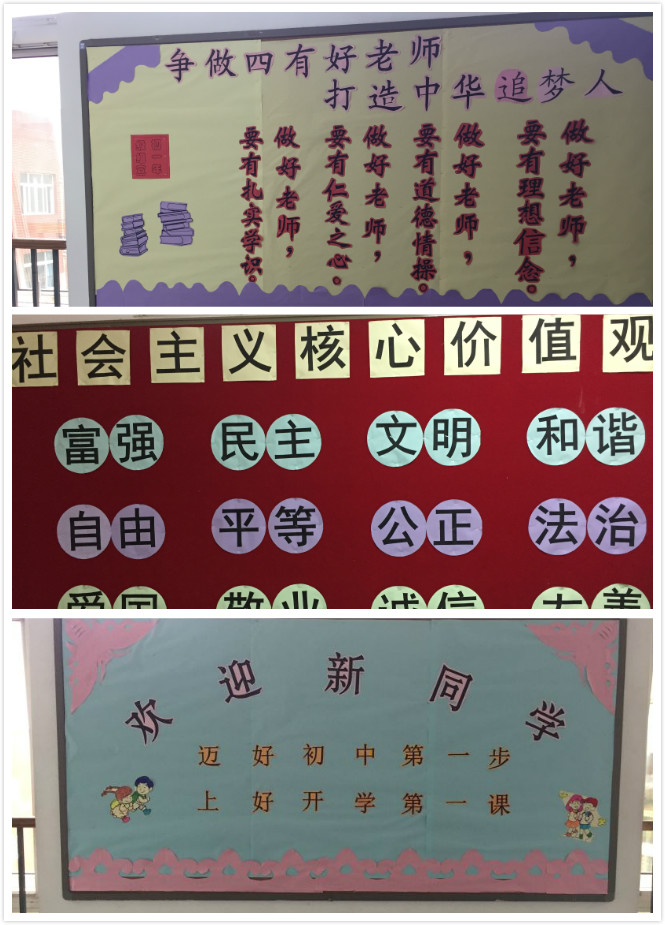 争做四有好老师
打造中华追梦人
做好老师，
要有理想信念。
做好老师，
要有道德情操。
做好老师，
要有仁爱之心。
做好老师，
要有扎实学识。
社会主义核心价值观
富强 民主 文明 和谐
自由 平等 公正 法治
爱国 敬业 诚信 友善
欢迎新同学
迈好初中第一步
上好开学第一课